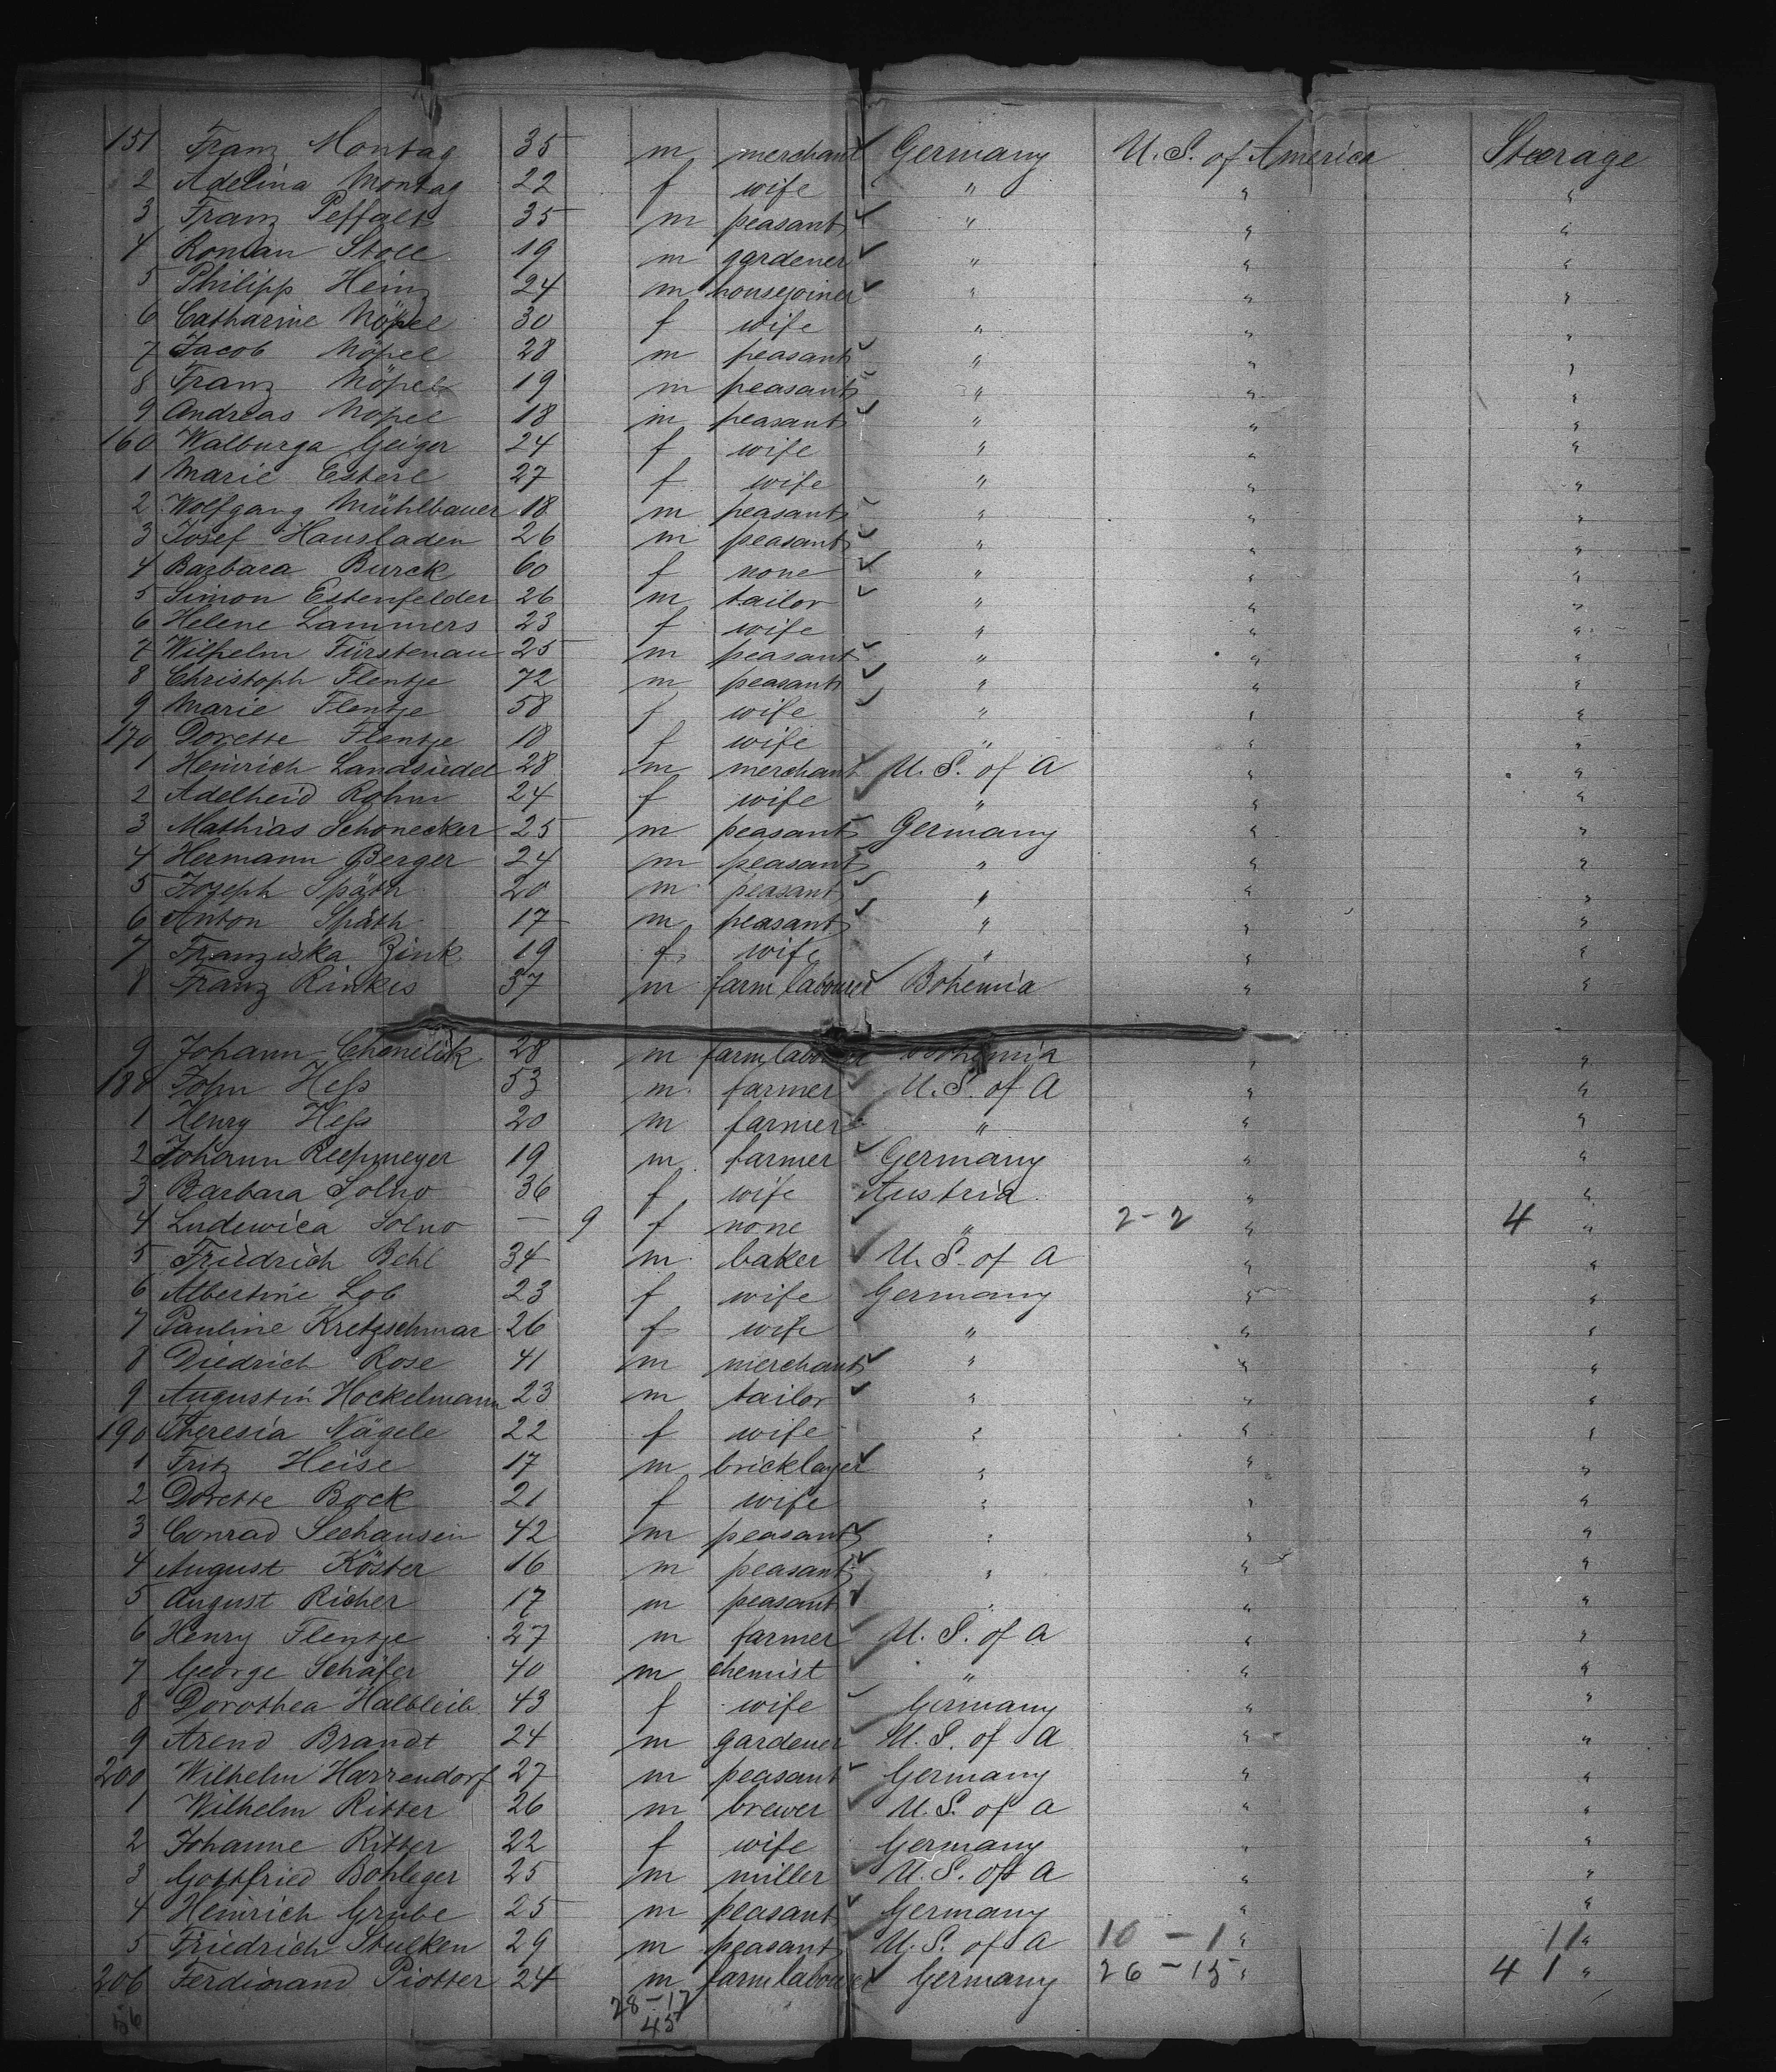 151 Franz Montag 35 m merchant Germany U. S. of America Steerage
2 Adelina Montag 22 f wife " " "
3 Franz Peffalt 35 m peasant " " "
4 Roman Stoll 19 m gardener " " "
5 Philipp Heinz 24 m housejoiner " " "
6 Catharine Nöpel 30 f wife " " "
7 Jacob Nöpel 28 m peasant " " "
8 Franz Nöpel 19 m peasant " " "
9 Andreas Nöpel 18 m peasant " " "
160 Walburga Geiger 24 f wife " " "
1 Marie Esterl 27 f wife " " "
2 Wolfgang Mühlbauer 18 m peasant " " "
3 Josef Hausladen 26 m peasant " " "
4 Barbara Burck 60 f none " " "
5 Simon Estenfelder 26 m tailor " " "
6 Helene Lammers 23 f wife " " "
7 Wilhelm Fürstenau 25 m peasant " " "
8 Christoph Flentje 72 m peasant " " "
9 Marie Flentje 58 f wife " " "
170 Dorette Flentje 18 f wife " " "
1 Heinrich Landsiedel 28 m merchant U. S. of A " "
2 Adelheid Rohm 24 f wife " " "
3 Mathias Schonecker 25 m peasant Germany " "
4 Hermann Berger 24 m peasant " " "
5 Joseph Späth 20 m peasant " " "
6 Anton Späth 17 m peasant " " "
7 Franziska Zink 19 f wife " " "
8 Franz Rinkes 37 m farm labourer Bohemia " "
9 Johann Chmelik 28 m farm labourer Bohemia " "
180 John Heſs 53 m farmer U. S. of A " "
1 Henry Heſs 20 m farmer " " "
2 Johann Reepmeyer 19 m farmer Germany " "
3 Barbara Solno 36 f wife Austria " "
4 Ludewica Solno — 9 f none " 2-2 " 4 "
5 Friedrich Behl 34 m baker U. S. of A " "
6 Albertine Lob 23 f wife Germany " "
7 Pauline Kretzschmar 26 f wife " " "
8 Diedrich Rose 41 m merchant " " "
9 Augustin Hockelmann 23 m tailor " " "
190 Theresia Nägele 22 f wife " " "
1 Fritz Heise 17 m bricklayer " " "
2 Dorette Bock 21 f wife " " "
3 Conrad Seehausen 42 m peasant " " "
4 August Köster 16 m peasant " " "
5 August Richer 17 m peasant " " "
6 Henry Flentje 27 m farmer U. S. of A " "
7 George Schäfer 40 m chemist " " "
8 Dorothea Halbleib 43 f wife Germany " "
9 Arend Brandt 24 m gardener U. S. of A " "
200 Wilhelm Harrendorf 27 m peasant Germany " "
1 Wilhelm Ritter 26 m brewer U. S. of A " "
2 Johanne Ritter 22 f wife Germany " "
3 Gottfried Bohleger 25 m miller U. S. of A " "
4 Heinrich Grube 25 m peasant Germany " "
5 Friedrich Stulken 29 m peasant U. S. of A 10 - 1 " 11 "
206 Ferdinand Piotter 24 m farm labourer Germany 26 - 15 " 41 "
28 - 17
56 45